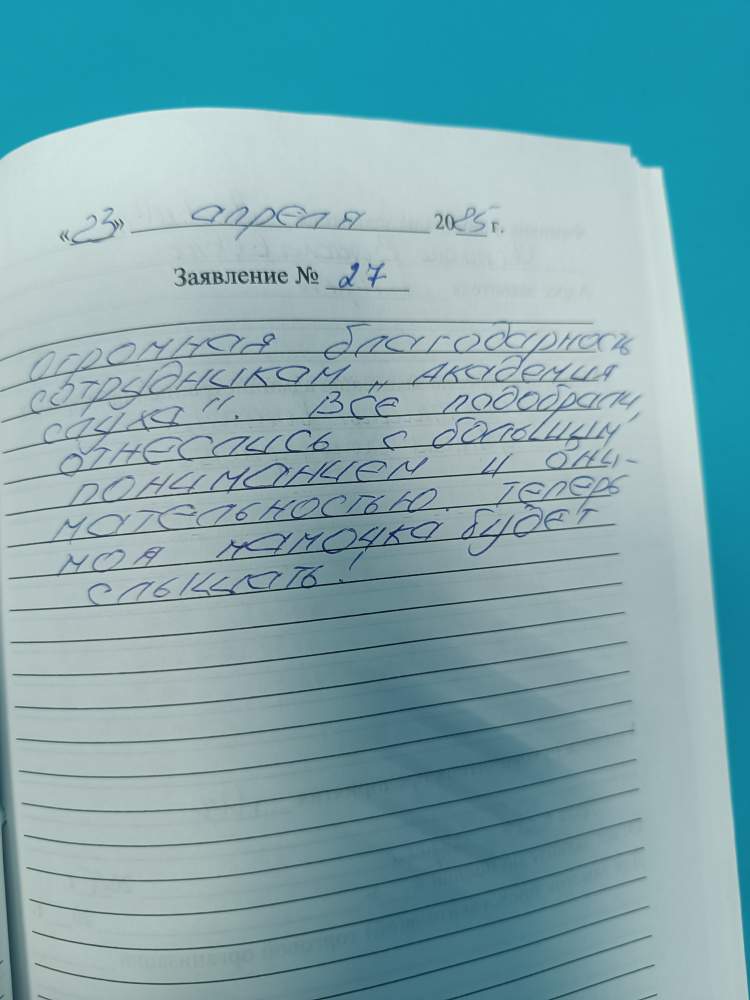 «23» апреля 2025 г.
Заявление № 27
огромная благодарность
сотрудникам „Академия
слуха". Все подобрали,
отнеслись с большим
пониманием и вни-
мательностью. теперь
моя мамочка будет
слышать!